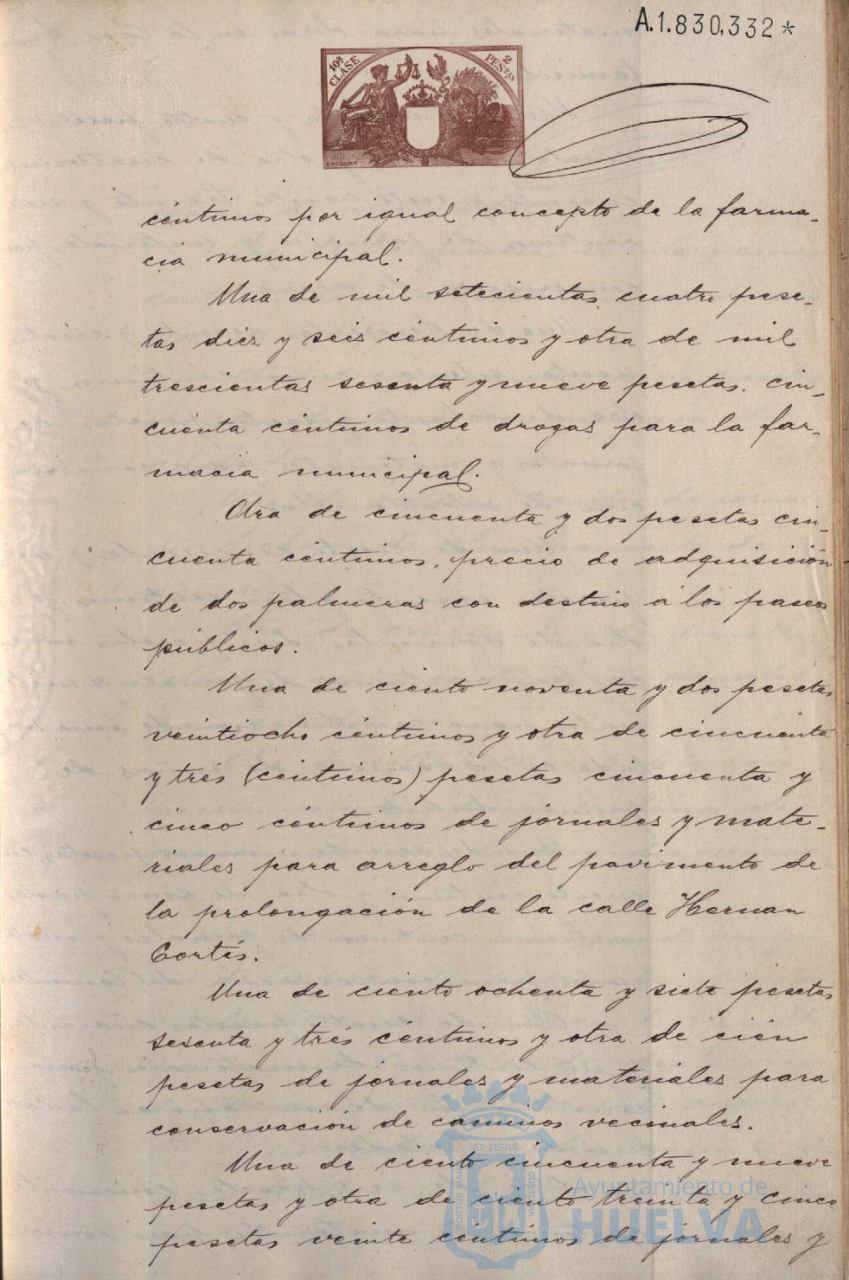 A.1.830,332*
10ª CLASE
2 PESTAS
céntimos por igual concepto de la farma-
cia municipal.
Una de mil setecientas cuatro pese-
tas diez y seis céntimos y otra de mil
trescientas sesenta y nueve pesetas cin-
cuenta céntimos de drogas para la far-
macia municipal.
Otra de cincuenta y dos pesetas cin-
cuenta céntimos, precio de adquisición
de dos palmeras con destino a los paseos
públicos.
Una de ciento noventa y dos pesetas
veintiocho céntimos y otra de cincuenta
y trés (céntimos) pesetas cincuenta y
cinco céntimos de jornales y mate-
riales para arreglo del pavimento de
la prolongación de la calle Hernan
Cortés.
Una de ciento ochenta y siete pesetas
sesenta y trés céntimos y otra de cién
pesetas de jornales y materiales para
conservación de caminos vecinales.
Una de ciento cincuenta y nueve
pesetas y otra de ciento treinta y cinco
pesetas veinte centimos de jornales y
Ayuntamiento de
HUELVA